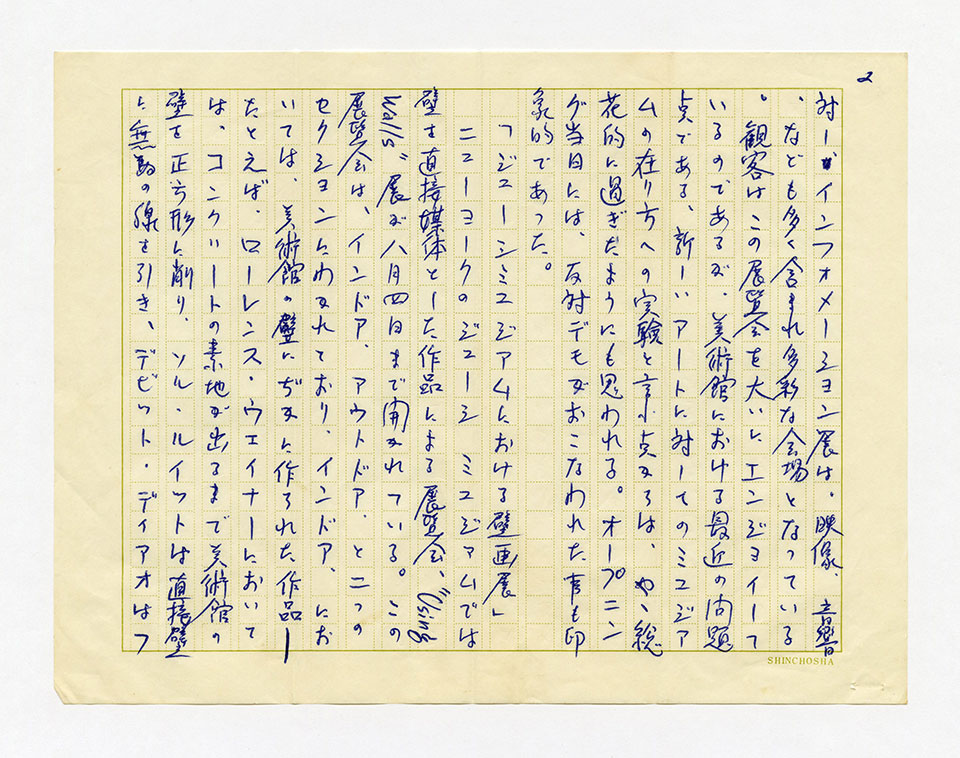 2
対しガインフォメーション展は、映像、音響
、なども多く含まれ多彩な会場となっている
。観客はこの展覧会を大いにエンジョイして
いるのであるが、美術館における最近の問題
点である、新しいアートに対してのミュジア
ムの在り方への実験と言う点からは、やゝ総
花的に過ぎたようにも思われる。オープニン
グ当日には、反対デモがおこなわれた事も印
象的であった。
「ジューシミュジアムにおける壁画展」
ニューヨークのジューシ ミュジアムでは
壁を直接媒体とした作品による展覧会、"Using
Walls"展が八月四日まで開かれている。この
展覧会は、インドア、アウトドア、と二つの
セクションにわかれており、インドア、にお
いては、美術館の壁にぢかに作られた作品ー
たとえば、ローレンス・ウエイナーにおいて
は、コンクリートの素地が出るまで美術館の
壁を正方形に削り、ソル・ルイットは直接壁
に無数の線を引き、デビット・ディアオはフ
SHINCHOSHA